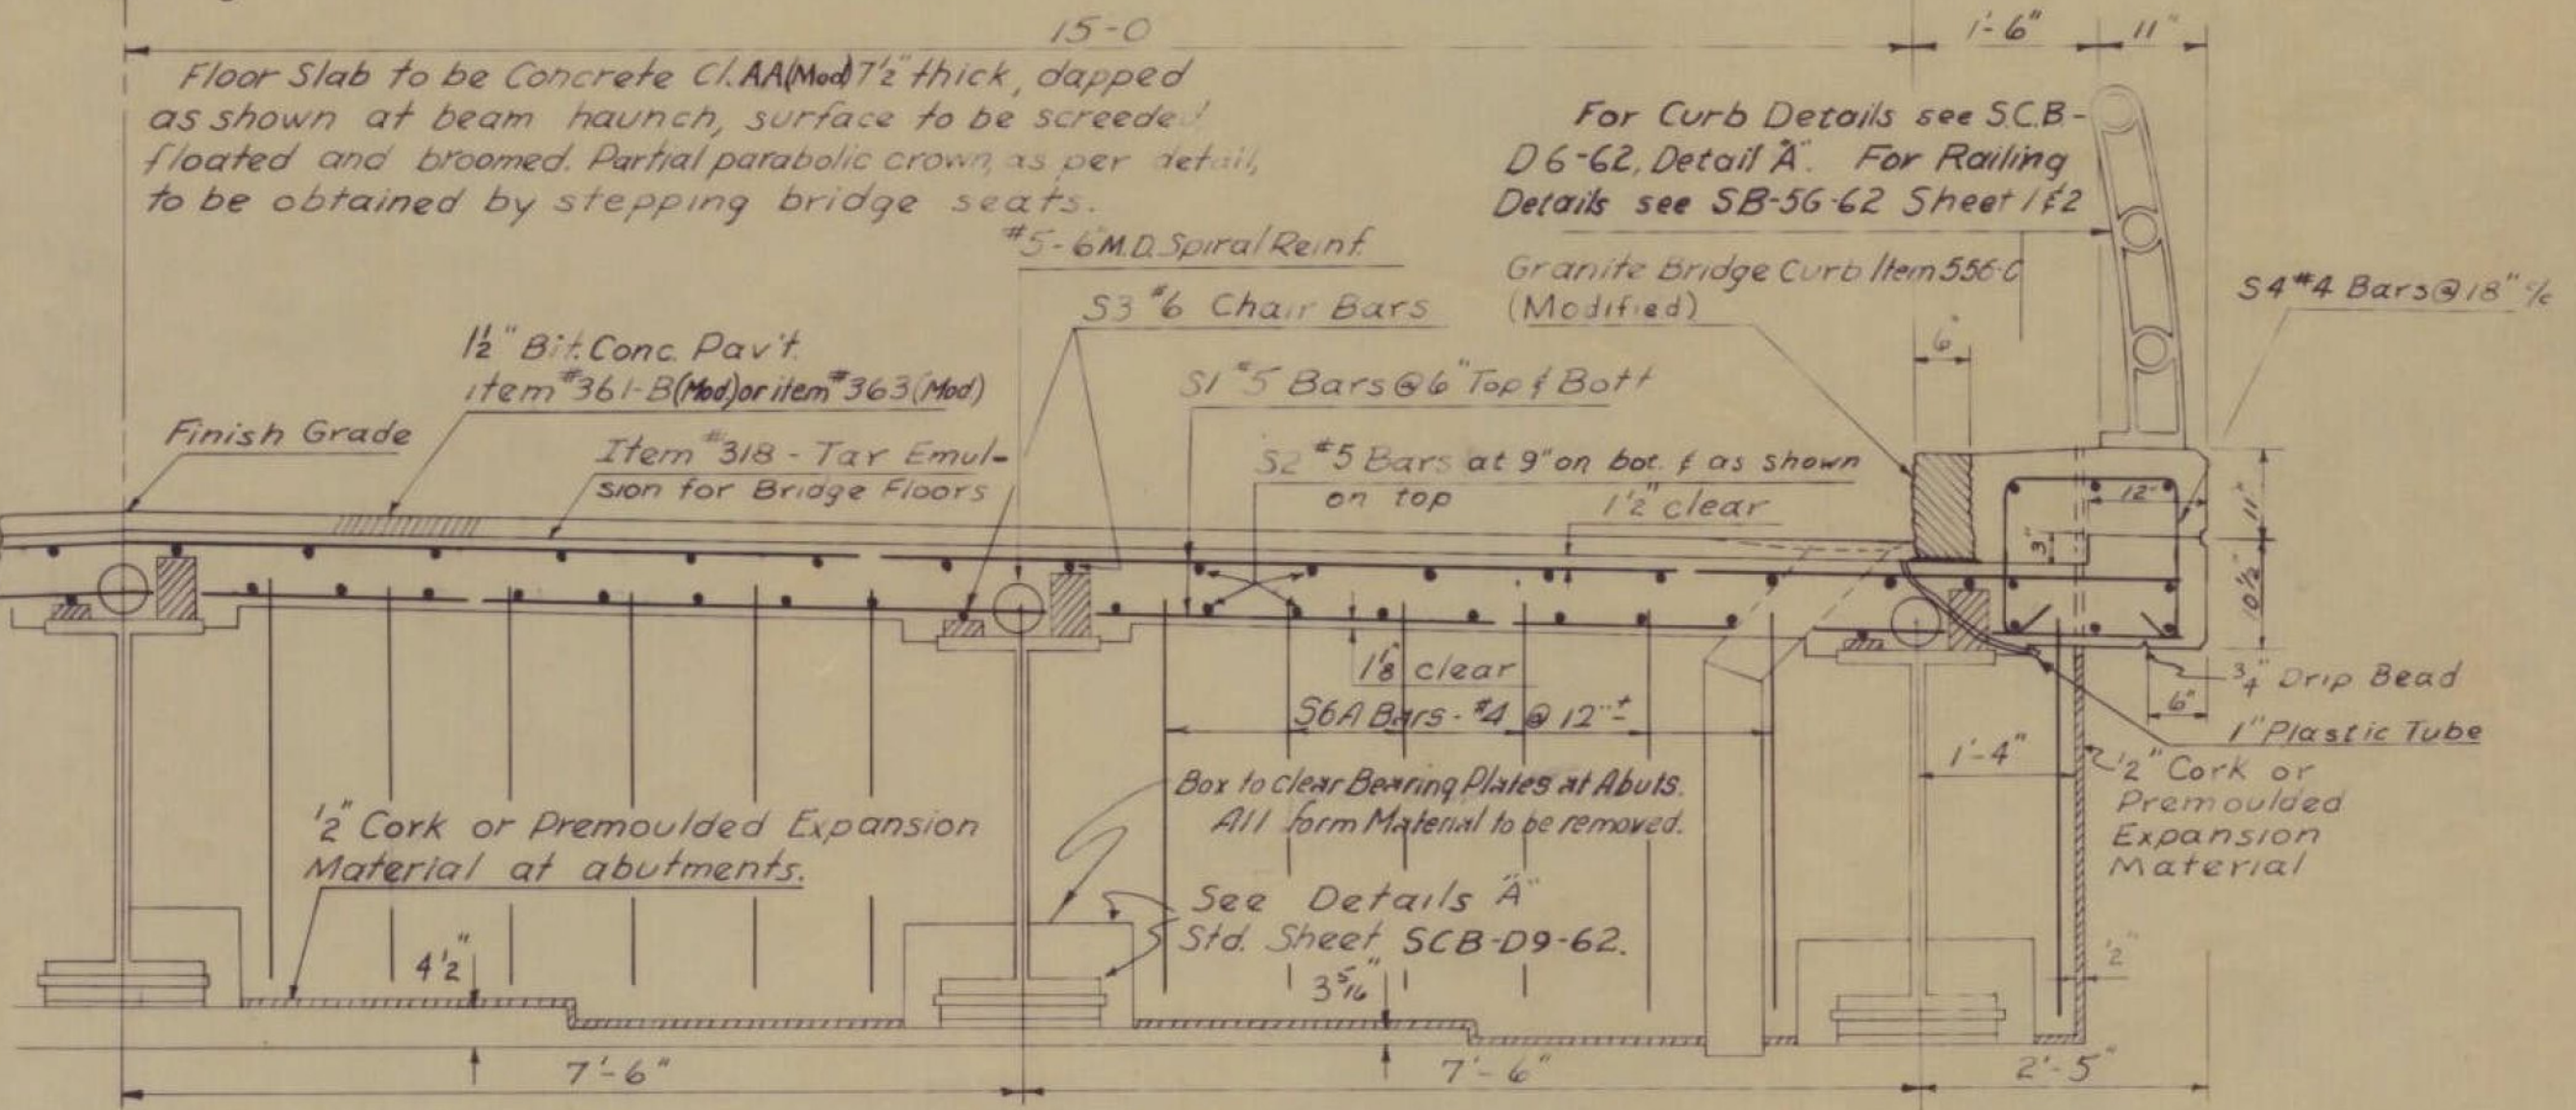 15-0
1'-6"
11"
Floor Slab to be Concrete Cl. AA(Mod) 7½" thick, dapped
as shown at beam haunch, surface to be screeded
floated and broomed. Partial parabolic crown, as per detail,
to be obtained by stepping bridge seats.
For Curb Details see S.C.B.-
D6-62, Detail "A". For Railing
Details see SB-56-62 Sheet 1 & 2
#5-6" M.D. Spiral Reinf.
Granite Bridge Curb Item 556-C
(Modified)
S4 #4 Bars @ 18" c/c
S3 #6 Chair Bars
1½" Bit. Conc. Pav't.
item #361-B(Mod.) or item #363 (Mod)
6"
S1 #5 Bars @ 6" Top & Bott
Finish Grade
Item #318 - Tar Emul-
sion for Bridge Floors
S2 #5 Bars at 9" on bot. & as shown
on top
1½" clear
12"
11"
3"
10½"
1⅛" clear
¾" Drip Bead
6"
S6A Bars - #4 @ 12" ±
1" Plastic Tube
1'-4"
½" Cork or
Premoulded
Expansion
Material
Box to clear Bearing Plates at Abuts.
All form Material to be removed.
½" Cork or Premoulded Expansion
Material at abutments.
See Details "A"
Std. Sheet SCB-D9-62.
4½"
3 5/16"
½"
7'-6"
7'-6"
2'-5"